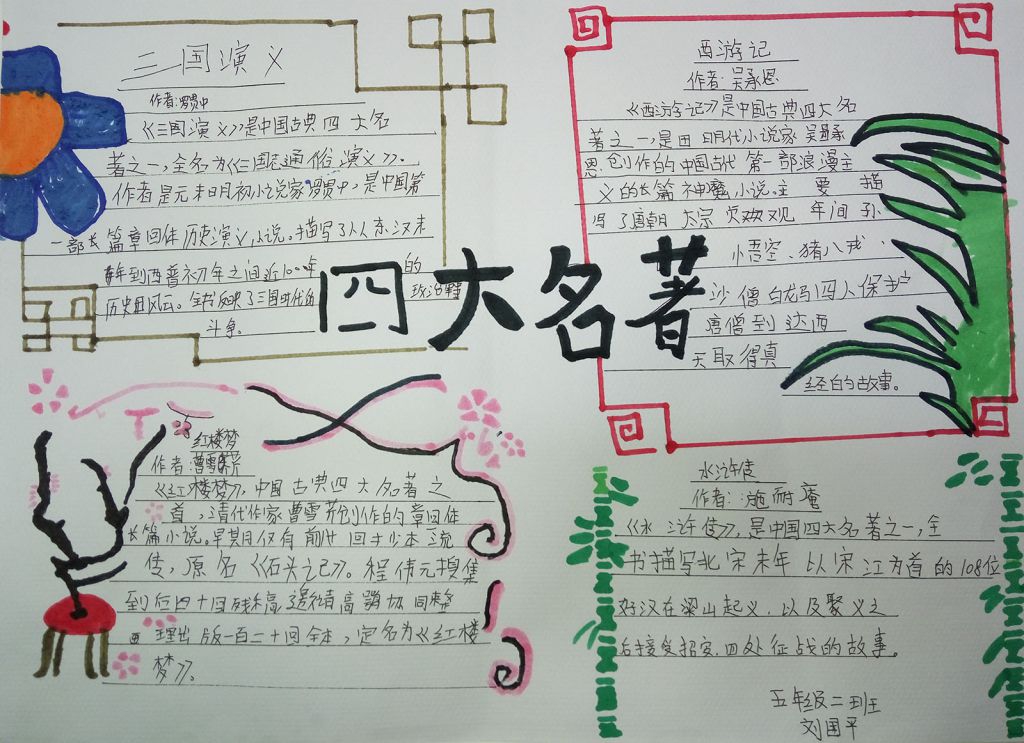 三国演义
作者:罗贯中
《三国演义》是中国古典四大名
著之一,全名为《三国志通俗演义》。
作者是元末明初小说家罗贯中,是中国第
一部长篇章回体历史演义小说。描写了从东汉末
年到西晋初年之间近100年的
历史风云。全书反映了三国时代的政治军事
斗争。
四大名著
西游记
作者:吴承恩
《西游记》是中国古典四大名
著之一,是由明代小说家吴承
恩创作的中国古代第一部浪漫主
义的长篇神魔小说。主要描
写了唐朝太宗贞观年间孙
悟空、猪八戒、
沙僧白龙马四人保护
唐僧到达西
天取得真
经的故事。
红楼梦
作者:曹雪芹
《红楼梦》,中国古典四大名著之
首,清代作家曹雪芹创作的章回体
长篇小说。早期仅有前八十回抄本流
传,原名《石头记》。程伟元搜集
到后四十回残稿邀请高鹗协同来整
理出版一百二十回全本,定名为《红楼
梦》。
水浒传
作者:施耐庵
《水浒传》,是中国四大名著之一,全
书描写北宋末年以宋江为首的108位
好汉在梁山起义,以及聚义之
后接受招安,四处征战的故事。
五年级二班
刘国平